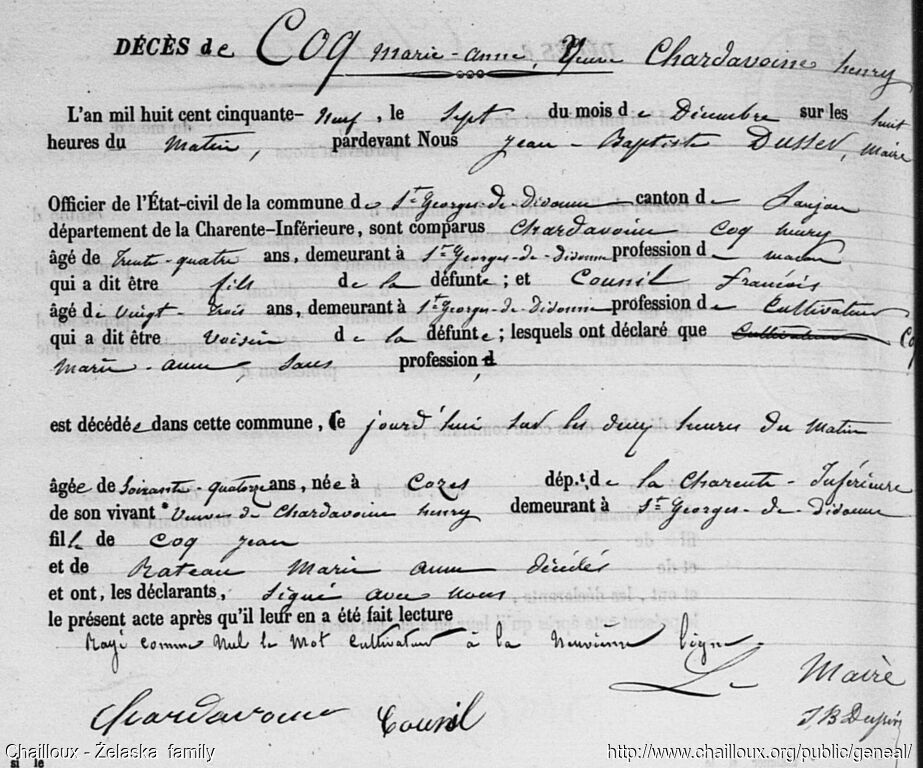 DÉCÈS de COQ Marie-anne, Veuve Chardavoine henry
L'an mil huit cent cinquante-Neuf, le Sept du mois de Décembre sur les huit
heures du Matin, pardevant Nous Jean-Baptiste, Maire
Officier de l'État-civil de la commune de St Georges-de-Didonne canton de Saujon
département de la Charente-Inférieure, sont comparus Chardavoine Coq henry
âgé de Trente-quatre ans, demeurant à St Georges-de-Didonne profession d maçon
qui a dit être fils de la défunte; et Counil Francois
âgé de Vingt-trois ans, demeurant à St Georges-de-Didonne profession de Cultivateur
qui a dit être Voisin de la défunte; lesquels ont déclaré que Cultivateur Coq
Marie-anne, sans profession, d
est décédée dans cette commune, Ce jourd'hui sur les deux heures du Matin
âgée de Soixante-quatorze ans, née à Cozes dép.t de la Charente-Inférieure
de son vivant Veuve de Chardavoine henry demeurant à St Georges-de-Didonne
fille de Coq Jean
et de Rateau Marie anne décédés
et ont, les déclarants, signé avec nous
le présent acte après qu'il leur en a été fait lecture
Rayé comme Nul le Mot Cultivateur à la Neuvième ligne
Le Maire
Chardavoine Counil J B
Chailloux - Żelaska family http://www.chailloux.org/public/geneal/
si le